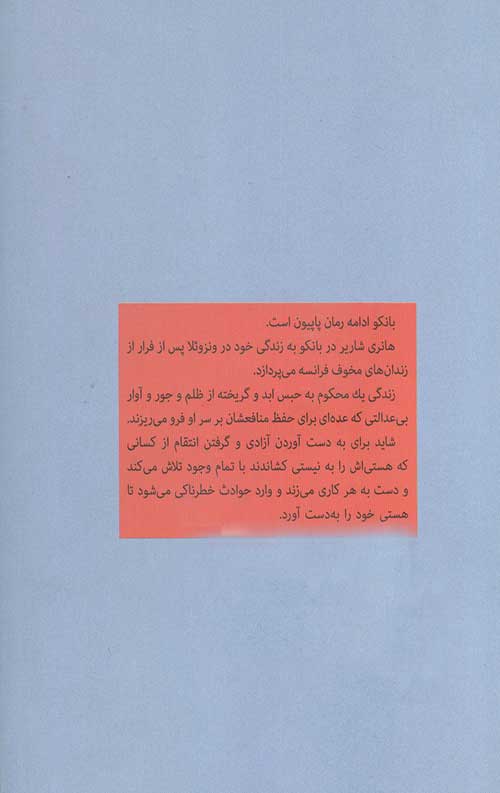 بانکو ادامه رمان پاپیون است.
هانری شاریر در بانکو به زندگی خود در ونزوئلا پس از فرار از
زندان‌های مخوف فرانسه می‌پردازد.
زندگی یك محکوم به حبس ابد و گریخته از ظلم و جور و آوار
بی‌عدالتی که عده‌ای برای حفظ منافعشان بر سر او فرو می‌ریزند.
شاید برای به دست آوردن آزادی و گرفتن انتقام از کسانی
که هستی‌اش را به نیستی کشاندند با تمام وجود تلاش می‌کند
و دست به هر کاری می‌زند و وارد حوادث خطرناکی می‌شود تا
هستی خود را به‌دست آورد.